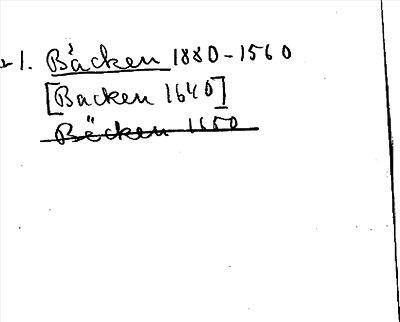 1. Båcken 1880-1560
[Backen 1640]
Bäcken 1650